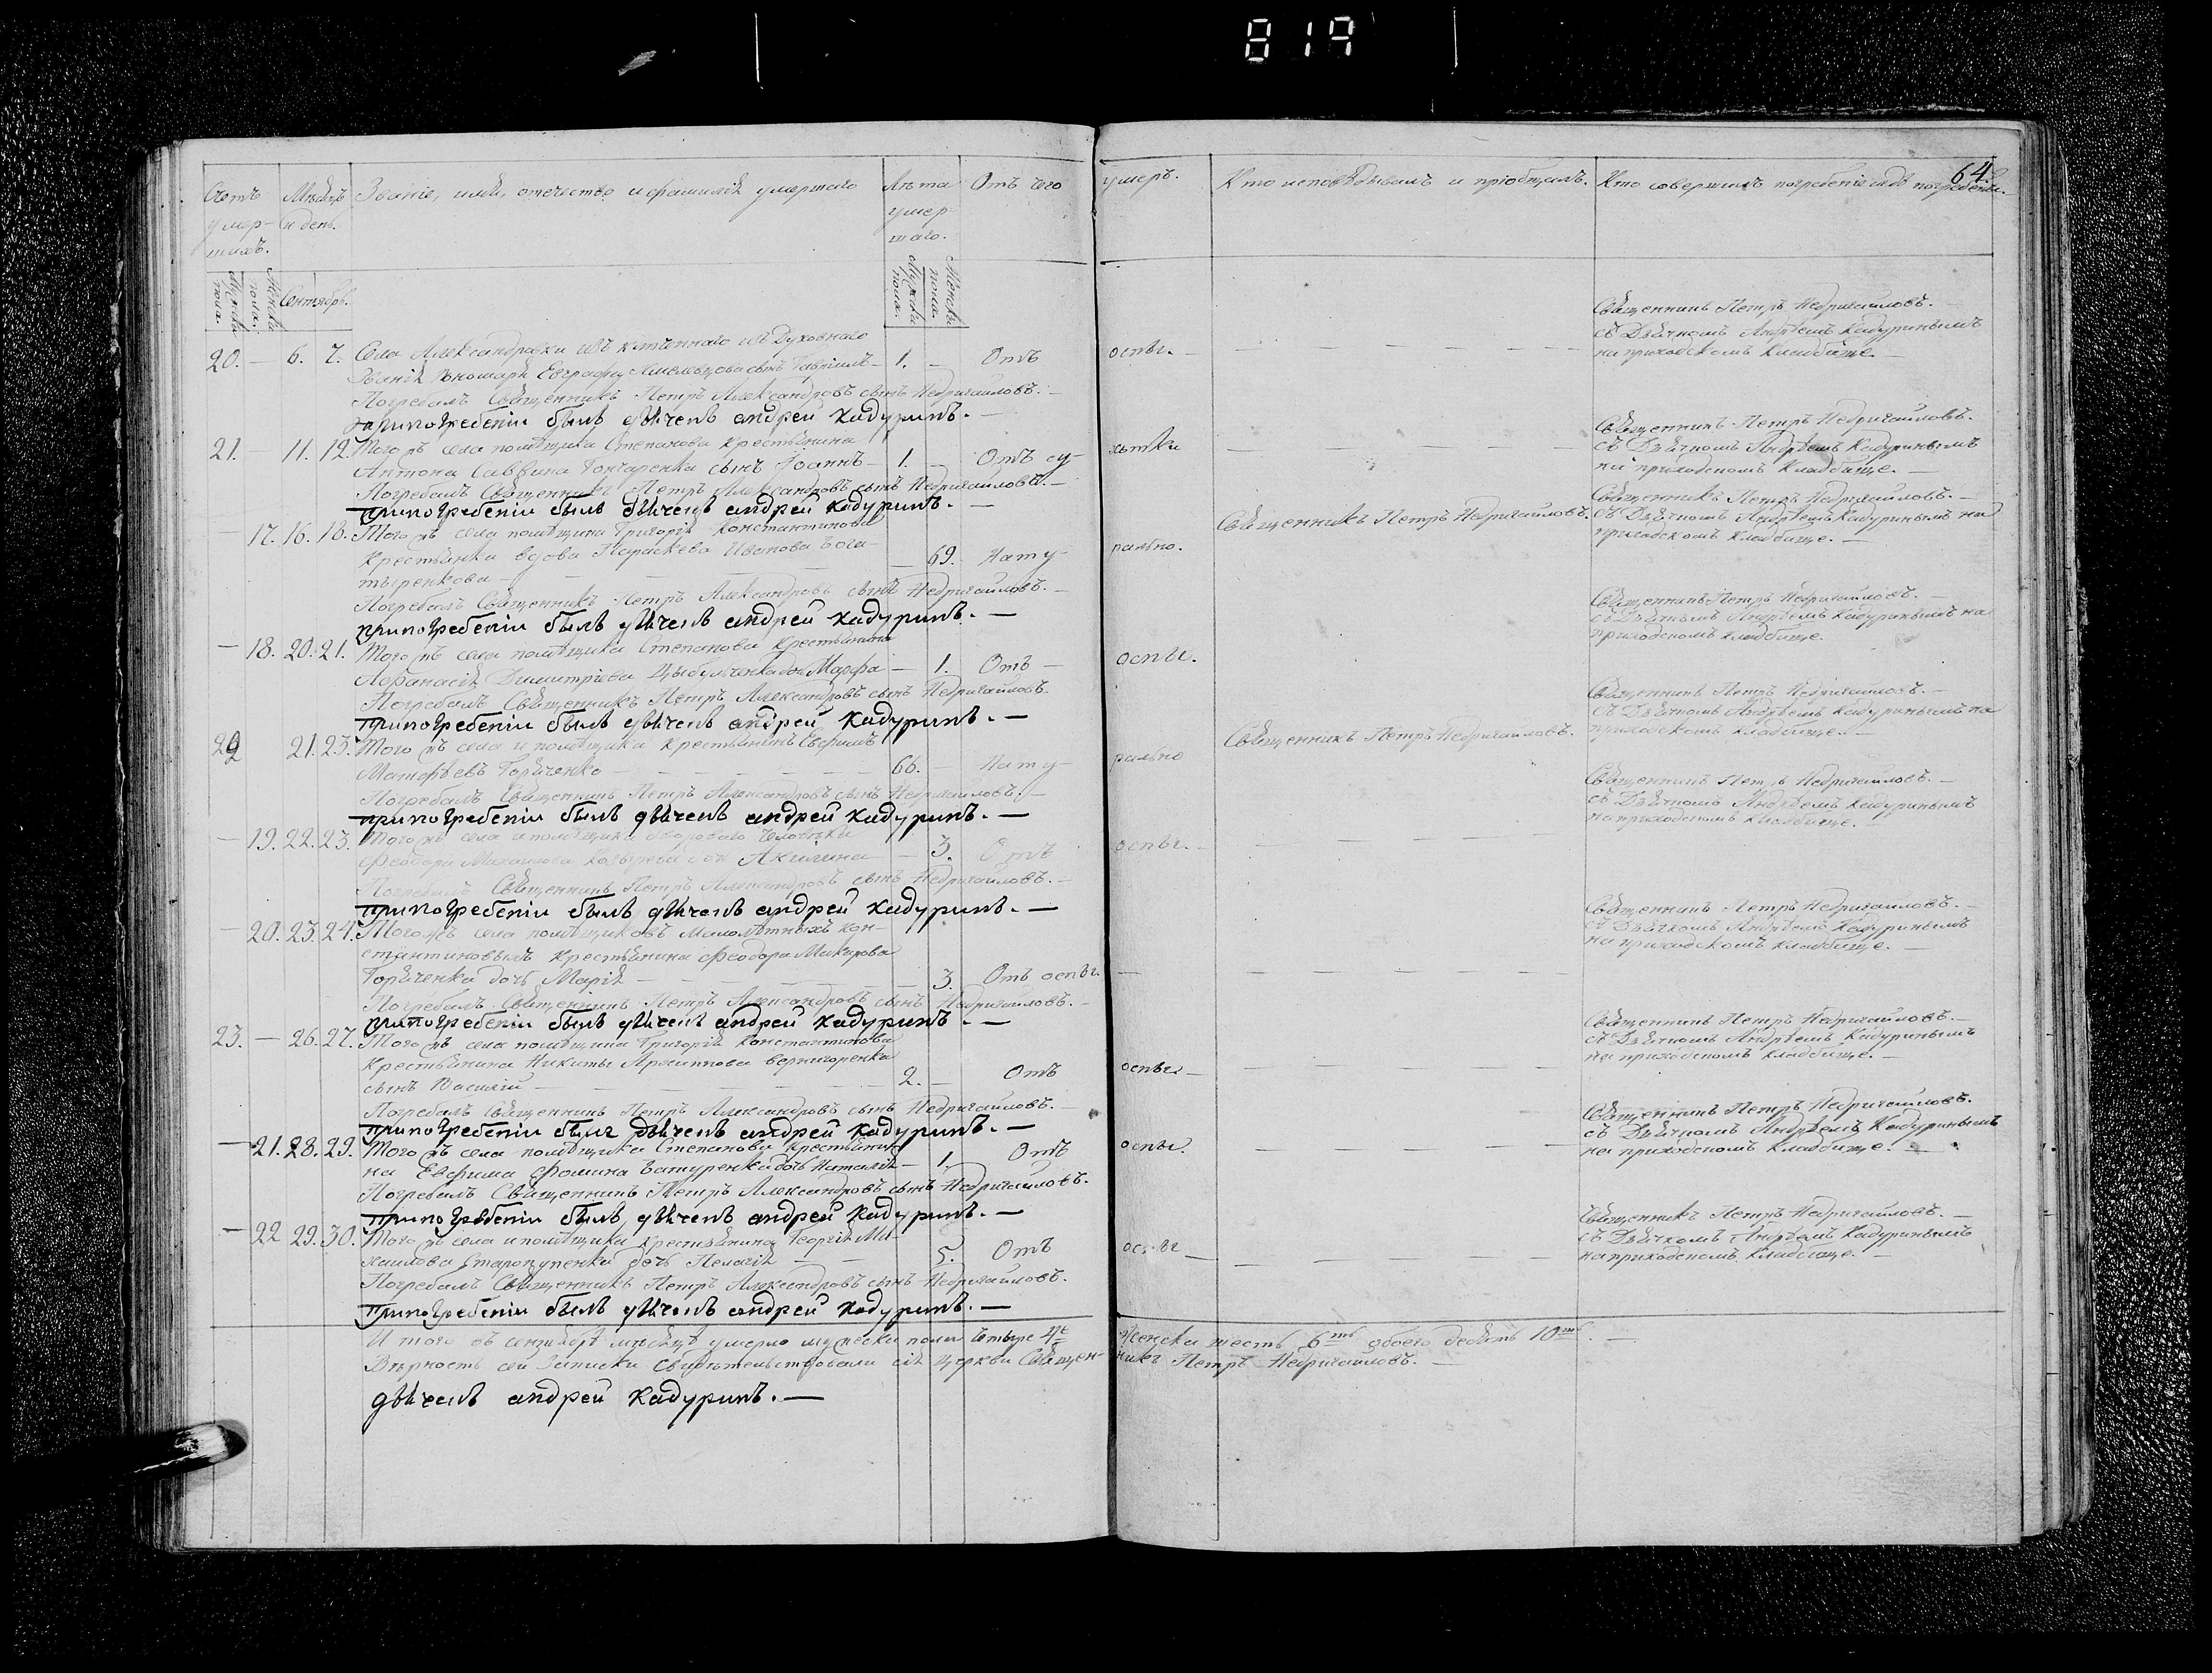 819
64.
Счетъ умер-шихъ.
Мѣсяцъ и день.
Званіе, имя, отечество и фамилія умершаго
Лѣта умер-шаго.
Отъ чего умеръ.
Кто исповѣдывалъ и пріобщалъ.
Кто совершилъ погребеніе и гдѣ погребены.
Мужеска пола.
Женска пола.
Сентябрь.
Мужеска пола.
Женска пола.
20. — 6. 7. Села Александровки изъ Духовнаго
Званія Пономаря Евграфа сынъ Гавріилъ — 1. — Отъ оспы. —
Погребалъ Священникъ Петръ Александровъ сынъ Недригайловъ. —
припогребеніи былъ дьячекъ андрей кадуринъ. —
Священникъ Петръ Недригайловъ. —
съ Дьячкомъ Андрѣемъ Кадуринымъ
на приходскомъ Кладбище. —
21. — 11. 12. Того жъ села помѣщика Степанова Крестьянина
Антона Саввина Гончаренка сынъ Іоаннъ — 1. — Отъ су-
Погребалъ Священникъ Петръ Александровъ сынъ Недригайловъ. —
припогребеніи былъ дьячекъ андрей кадуринъ. —
Священникъ Петръ Недригайловъ.
съ Дьячкомъ Андрѣемъ Кадуринымъ
на приходскомъ Кладбище. —
17. 16. 18. Того жъ села помѣщика Григорія Константинова
Крестьянка вдова Параскева Иванова Бога-
тыренкова — 69. Нату-рально.
Погребалъ Священникъ Петръ Александровъ сынъ Недригайловъ. —
припогребеніи былъ дьячекъ андрей кадуринъ. —
Священникъ Петръ Недригайловъ.
Священникъ Петръ Недригайловъ. —
съ Дьячкомъ Андрѣемъ Кадуринымъ на
приходскомъ Кладбище. —
— 18. 20. 21. Того жъ села помѣщика Степанова Крестьянина
Афанасія Димитріева Цыбульченка дочь Марфа — 1. Отъ — оспы.
Погребалъ Священникъ Петръ Александровъ сынъ Недригайловъ.
припогребеніи былъ дьячекъ андрей кадуринъ. —
Священникъ Петръ Недригайловъ. —
съ Дьячкомъ Андрѣемъ Кадуринымъ на
приходскомъ кладбище.
22 21. 23. Того жъ села и помѣщика Крестьянинъ Евфимъ
Матфѣевъ Горяченко — 66. — Нату-рально
Погребалъ Священникъ Петръ Александровъ сынъ Недригайловъ. —
припогребеніи былъ дьячекъ андрей кадуринъ. —
Священникъ Петръ Недригайловъ.
Священникъ Петръ Недригайловъ. —
съ Дьячкомъ Андрѣемъ Кадуринымъ на
приходскомъ кладбище. —
— 19. 22. 23. Того жъ села и помѣщика двороваго человѣка
Феодора Михайлова дочь Акилина — 3. Отъ оспы. —
Погребалъ Священникъ Петръ Александровъ сынъ Недригайловъ. —
припогребеніи былъ дьячекъ андрей кадуринъ. —
Священникъ Петръ Недригайловъ. —
съ Дьячкомъ Андрѣемъ Кадуринымъ
на приходскомъ Кладбище. —
— 20. 23. 24. Того жъ села помѣщиковъ малолѣтныхъ Кон-
стантиновыхъ Крестьянина Феодора Макарова
Горяченка дочь Марія — 3. Отъ оспы.
Погребалъ Священникъ Петръ Александровъ сынъ Недригайловъ. —
припогребеніи былъ дьячекъ андрей кадуринъ. —
Священникъ Петръ Недригайловъ. —
съ Дьячкомъ Андрѣемъ Кадуринымъ
на приходскомъ Кладбище. —
23. — 26. 27. Того жъ села помѣщика Григорія Константинова
Крестьянина Никиты Архиппова Вернигоренка
сынъ Василій — 2. — Отъ оспы —
Погребалъ Священникъ Петръ Александровъ сынъ Недригайловъ. —
припогребеніи былъ дьячекъ андрей кадуринъ. —
Священникъ Петръ Недригайловъ. —
съ Дьячкомъ Андрѣемъ Кадуринымъ
на приходскомъ Кладбище. —
— 21. 28. 29. Того жъ села помѣщика Степанова Крестьяни-
на Евфима Фомина Батуренка дочь Наталія — 1. Отъ оспы.
Погребалъ Священникъ Петръ Александровъ сынъ Недригайловъ.
припогребеніи былъ дьячекъ андрей кадуринъ. —
Священникъ Петръ Недригайловъ.
съ Дьячкомъ Андрѣемъ Кадуринымъ
на приходскомъ Кладбище. —
— 22 29. 30. Того жъ села и помѣщика Крестьянина Георгія Ми-
хаилова дочь Пелагія — 5. Отъ оспы —
Погребалъ Священникъ Петръ Александровъ сынъ Недригайловъ.
припогребеніи былъ дьячекъ андрей кадуринъ. —
Священникъ Петръ Недригайловъ. —
съ Дьячкомъ Андрѣемъ Кадуринымъ
на приходскомъ Кладбище. —
Итого въ сентябрѣ мѣсяцѣ умерло мужеска пола четыре 4е женска шесть 6ть обоего десять 10ть. —
Вѣрность сей Записки свидѣтельствовали сія церкви Священ-никъ Петръ Недригайловъ. —
дьячекъ андрей кадуринъ. —